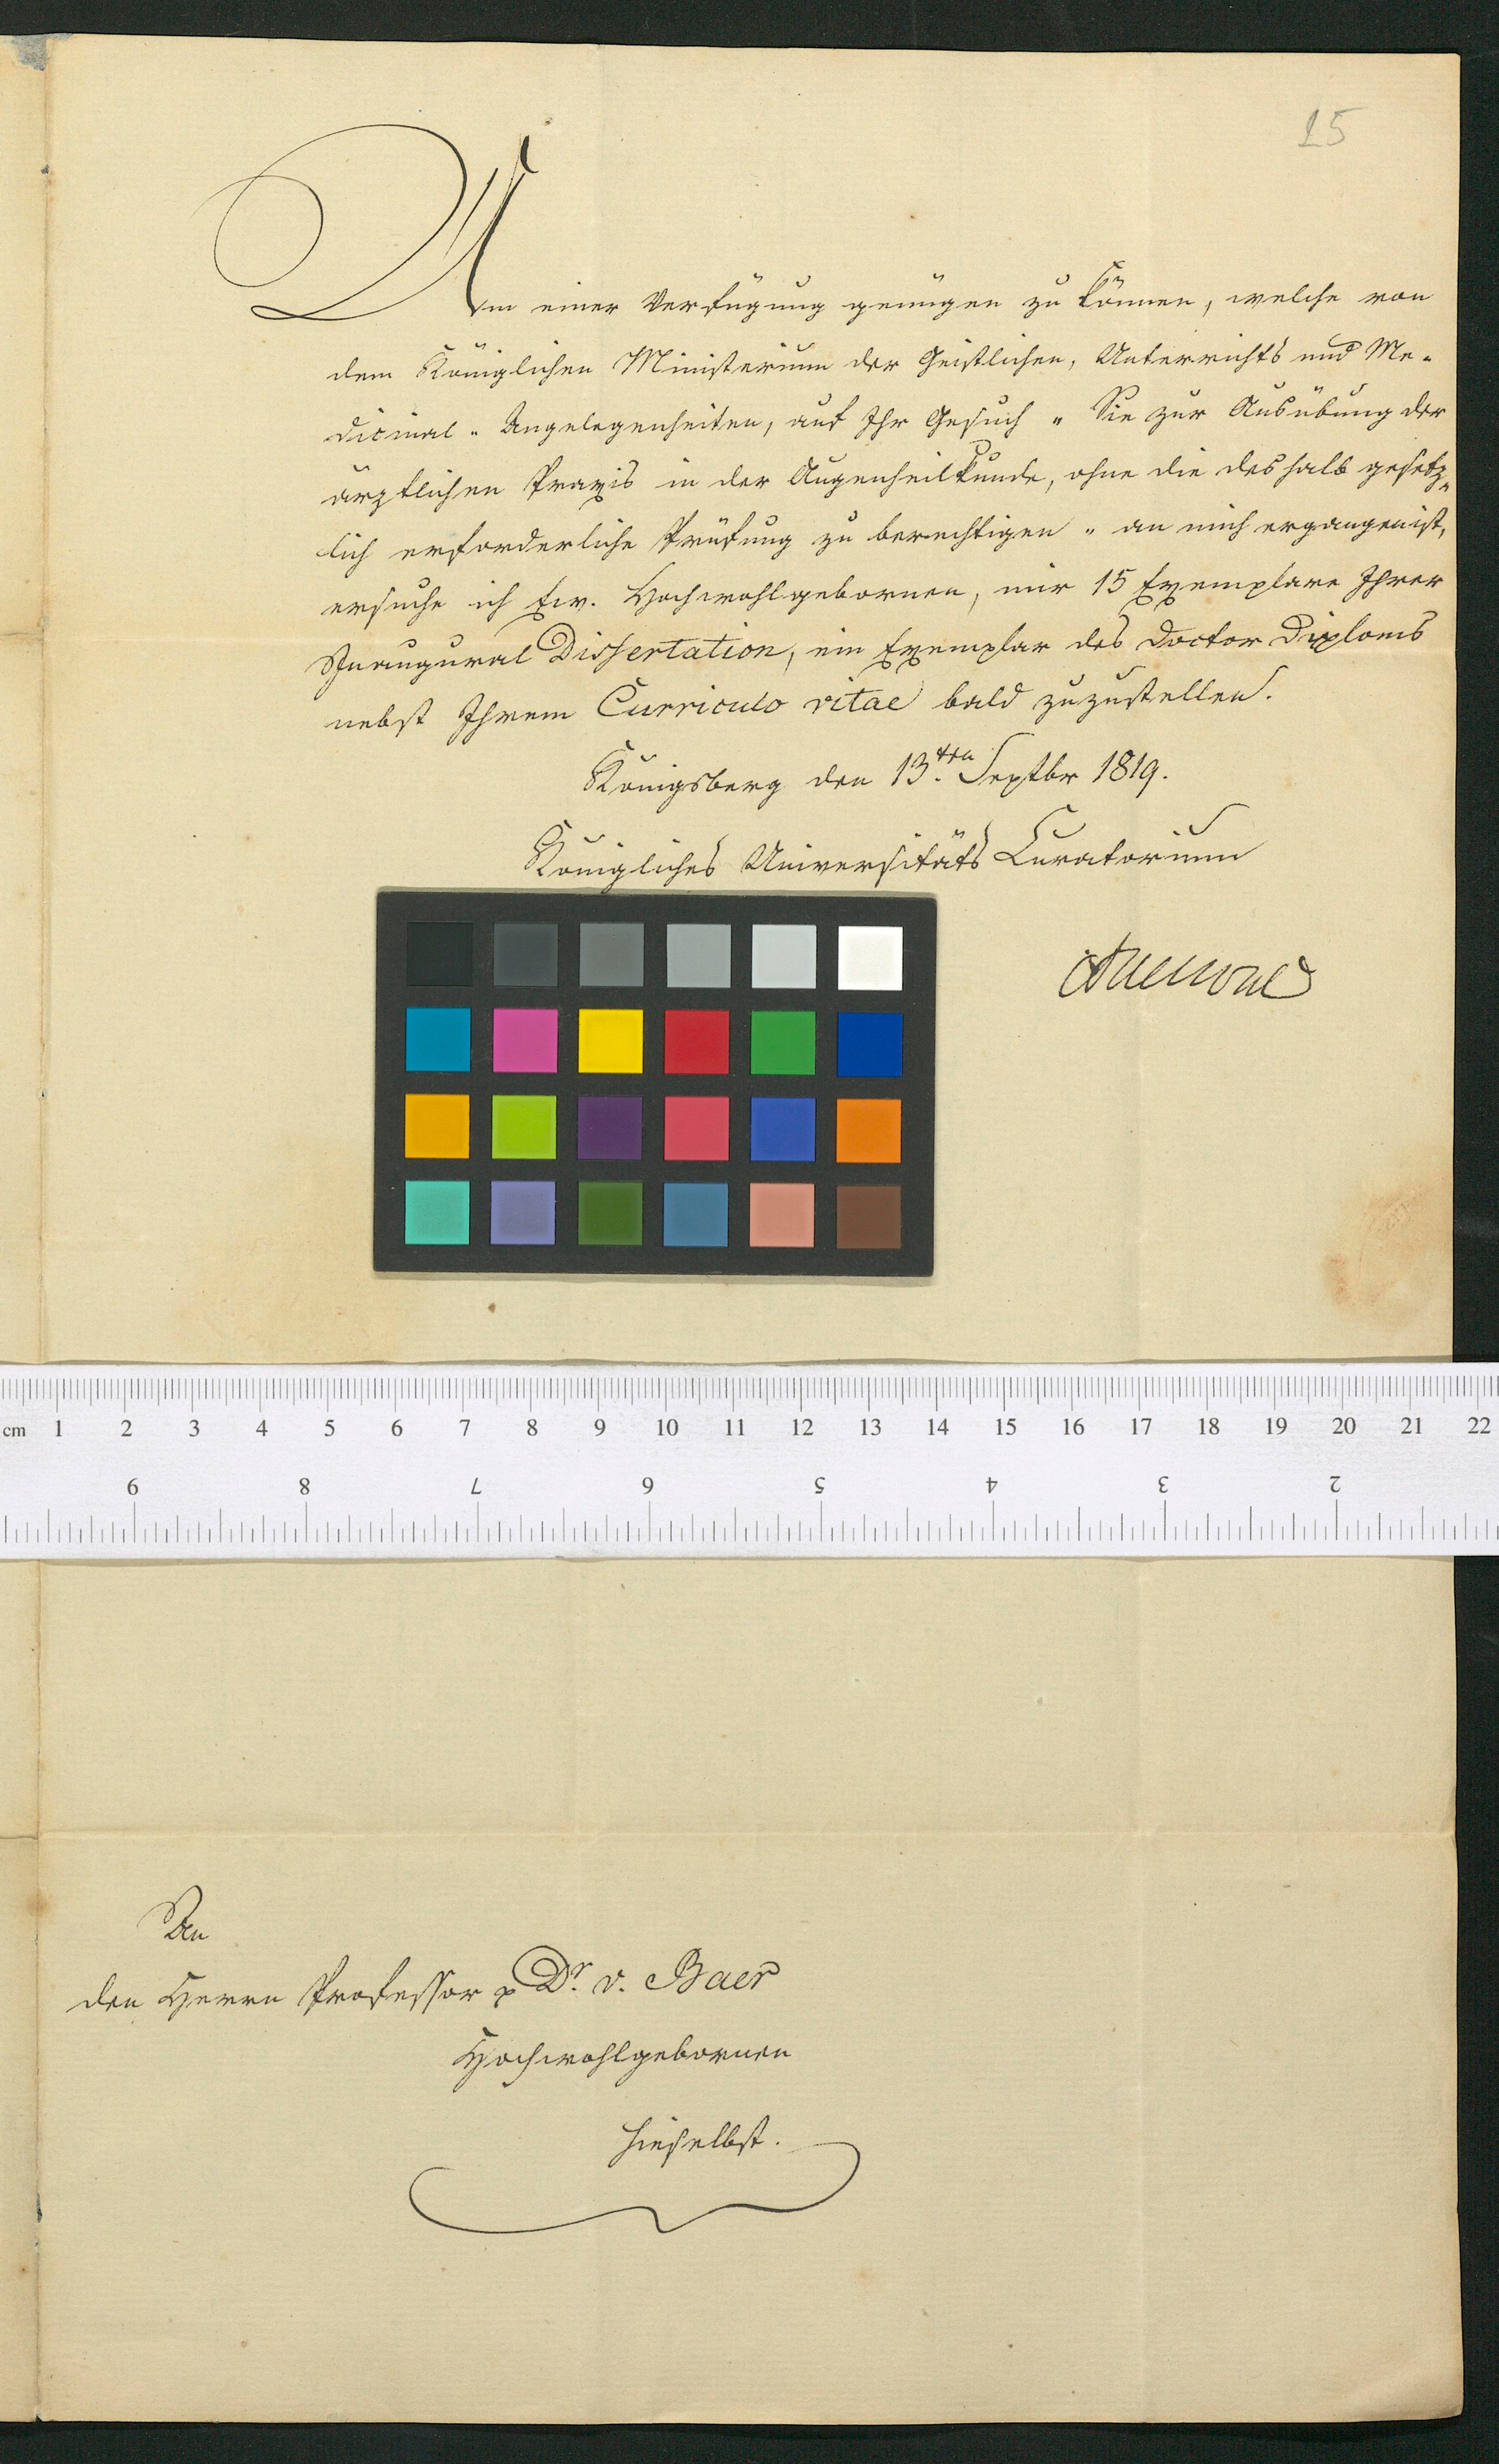 25
Um einer Verfügung genügen zu können, welche von
dem Königlichen Ministerium der Geistlichen, Unterrichts und Me-
dicinal-Angelegenheiten, auf Ihr Gesuch „ Sie zur Ausübung der
ärztlichen Praxis in der Augenheilkunde, ohne die deshalb gesetz-
lich erforderliche Prüfung zu berechtigen „ an mich ergangen ist,
ersuche ich Ew. Hochwohlgebornen, mir 15 Exemplare Ihrer
Inaugural Dissertation, ein Exemplar des Doctor Diploms
nebst Ihrem Curriculo vitae bald zuzustellen.
Königsberg den 13ten Septbr 1819.
Königliches Universitäts Curatorium
cm 1 2 3 4 5 6 7 8 9 10 11 12 13 14 15 16 17 18 19 20 21 22
9 8 7 6 5 4 3 2
An
den Herrn Professor p Dr. v. Baer
Hochwohlgebornen
hieselbst.